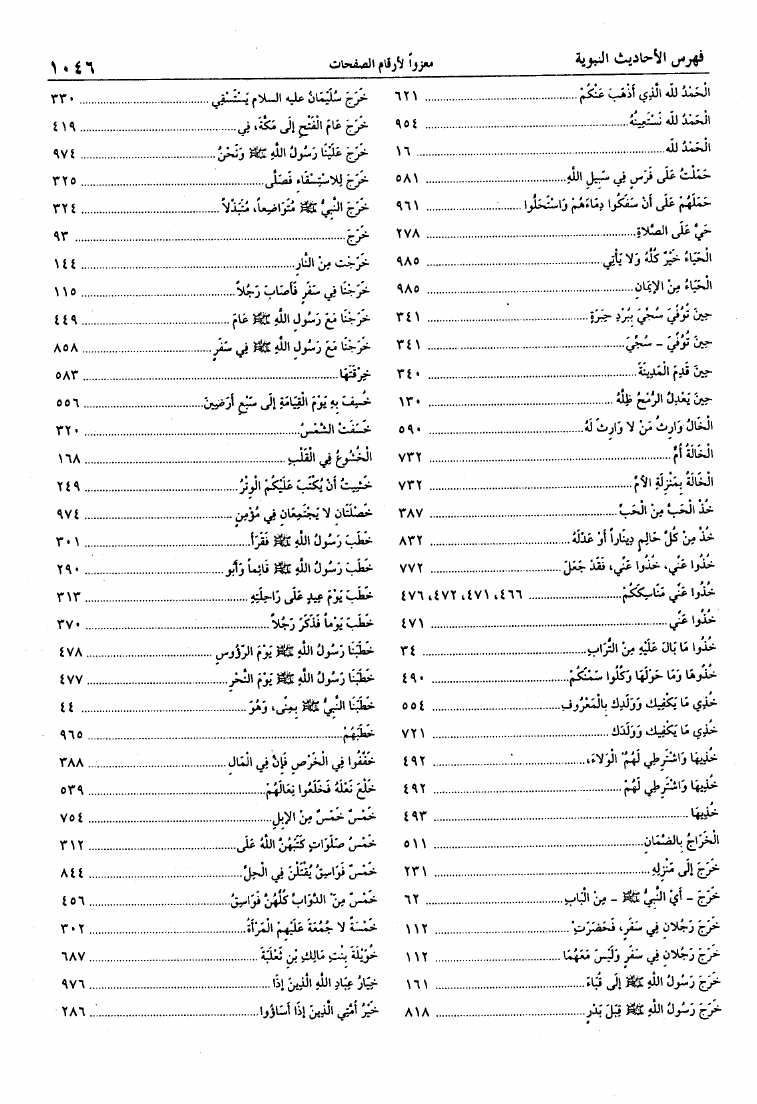 فهرس الأحاديث النبوية معزواً لأرقام الصفحات ١٠٤٦
الْحَمْدُ لله الَّذِي أَذْهَبَ عَنْكُمْ ٦٢١
الْحَمْدُ لله نَسْتَعِينُهُ ٩٥٤
الْحَمْدُ لله ١٦
حَمَلْتُ عَلَى فَرَسٍ فِي سَبِيلِ اللَّهِ ٥٨١
حَمَلَهُمْ عَلَى أَنْ سَفَكُوا دِمَاءَهُمْ وَاسْتَحَلُّوا ٩٦١
حَيَّ عَلَى الصَّلاةِ ٢٧٨
الْحَيَاءُ خَيْرٌ كُلُّهُ وَلا يَأْتِي ٩٨٥
الْحَيَاءُ مِنَ الإيمَانِ ٩٨٥
حِينَ تُوُفِّيَ سُجِّيَ بِبُرْدِ حِبَرَةٍ ٣٤١
حِينَ تُوُفِّيَ - سُجِّيَ ٣٤١
حِينَ قَدِمَ الْمَدِينَةَ ٣٤٠
حِينَ يَعْدِلُ الرُّمْحُ ظِلَّهُ ١٣٠
الْخَالُ وَارِثُ مَنْ لا وَارِثَ لَهُ ٥٩٠
الْخَالَةُ أُمٌّ ٧٣٢
الْخَالَةُ بِمَنْزِلَةِ الأمِّ ٧٣٢
خُذْ الْحَبَّ مِنَ الْحَبِّ ٣٨٧
خُذْ مِنْ كُلِّ حَالِمٍ دِينَاراً أَوْ عَدْلَهُ ٨٣٢
خُذُوا عَنِّي، خُذُوا عَنِّي، فَقَدْ جَعَلَ ٧٧٢
خُذُوا عَنِّي مَنَاسِكَكُمْ ٤٦٦، ٤٧١، ٤٧٢، ٤٧٦
خُذُوا عَنِّي ٤٧١
خُذُوا مَا بَالَ عَلَيْهِ مِنَ التُّرَابِ ٣٤
خُذُوهَا وَمَا حَوْلَهَا وَكُلُوا سَمْنَكُمْ ٤٩٠
خُذِي مَا يَكْفِيكِ وَوَلَدِكِ بِالْمَعْرُوفِ ٥٥٤
خُذِي مَا يَكْفِيكِ وَوَلَدَكِ ٧٢١
خُذِيهَا وَاشْتَرِطِي لَهُمُ الْوَلاءَ، ٤٩٢
خُذِيهَا وَاشْتَرِطِي لَهُمْ ٤٩٢
خُذِيهَا ٤٩٣
الْخَرَاجُ بِالضَّمَانِ ٥١١
خَرَجَ إِلَى مَنْزِلِهِ ٢٣١
خَرَجَ - أَيْ النَّبِيُّ ﷺ - مِنَ الْبَابِ ٦٢
خَرَجَ رَجُلانِ فِي سَفَرٍ، فَحَضَرَتْ ١١٢
خَرَجَ رَجُلانِ فِي سَفَرٍ وَلَيْسَ مَعَهُمَا ١١٢
خَرَجَ رَسُولُ اللَّهِ ﷺ إِلَى قُبَاءَ ١٦١
خَرَجَ رَسُولُ اللَّهِ ﷺ قِبَلَ بَدْرٍ ٨١٨
خَرَجَ سُلَيْمَانُ عليه السلام يَسْتَسْقِي ٣٣٠
خَرَجَ عَامَ الْفَتْحِ إِلَى مَكَّةَ، فِي ٤١٩
خَرَجَ عَلَيْنَا رَسُولُ اللَّهِ ﷺ وَنَحْنُ ٩٧٤
خَرَجَ لِلاسْتِسْقَاءِ فَصَلَّى ٣٢٥
خَرَجَ النَّبِيُّ ﷺ مُتَوَاضِعاً، مُتَبَذِّلاً ٣٢٤
خَرَجَ ٩٣
خَرَجَت مِنَ النَّارِ ١٤٤
خَرَجْنَا فِي سَفَرٍ فَأَصَابَ رَجُلاً ١١٥
خَرَجْنَا مَعَ رَسُولِ اللَّهِ ﷺ عَامَ ٤٤٩
خَرَجْنَا مَعَ رَسُولِ اللَّهِ ﷺ فِي سَفَرٍ ٨٥٨
خِرْقَتَهَا ٥٨٣
خُسِفَ بِهِ يَوْمَ الْقِيَامَةِ إِلَى سَبْعِ أَرَضِينَ ٥٥٦
خَسَفَتْ الشَّمْسُ ٣٢٠
الْخُشُوعُ فِي الْقَلْبِ ١٦٨
خَشِيتُ أَنْ يُكْتَبَ عَلَيْكُمْ الْوِتْرُ ٢٤٩
خَصْلَتَانِ لا يَجْتَمِعَانِ فِي مُؤْمِنٍ ٩٧٤
خَطَبَ رَسُولُ اللَّهِ ﷺ فَقَرَأَ ٣٠١
خَطَبَ رَسُولُ اللَّهِ ﷺ قَائِماً وَأَبُو ٢٩٠
خَطَبَ يَوْمَ عِيدٍ عَلَى رَاحِلَتِهِ ٣١٣
خَطَبَ يَوْماً فَذَكَرَ رَجُلاً ٣٧٠
خَطَبَنَا رَسُولُ اللَّهِ ﷺ يَوْمَ الرُّؤُوسِ ٤٧٨
خَطَبَنَا رَسُولُ اللَّهِ ﷺ يَوْمَ النَّحْرِ ٤٧٧
خَطَبَنَا النَّبِيُّ ﷺ بِمِنًى، وَهُوَ ٤٤
خَطَبَهُمْ ٩٦٥
خَفِّفُوا فِي الْخَرْصِ فَإِنَّ فِي الْمَالِ ٣٨٨
خَلَعَ نَعْلَهُ فَخَلَعُوا نِعَالَهُمْ ٥٣٩
خَمْسٌ خَمْسٌ مِنَ الإبِلِ ٧٥٤
خَمْسُ صَلَوَاتٍ كَتَبَهُنَّ اللَّهُ عَلَى ٣١٢
خَمْسٌ فَوَاسِقُ يُقْتَلْنَ فِي الْحِلِّ ٨٤٤
خَمْسٌ مِنَ الدَّوَابِّ كُلُّهُنَّ فَوَاسِقُ ٤٥٦
خَمْسَةٌ لا جُمُعَةَ عَلَيْهِمْ الْمَرْأَةُ ٣٠٢
خُوَيْلَةَ بِنْتِ مَالِكِ بْنِ ثَعْلَبَةَ ٦٨٧
خِيَارُ عِبَادِ اللَّهِ الَّذِينَ إِذَا ٩٧٦
خَيْرُ أُمَّتِي الَّذِينَ إِذَا أَسَاؤُوا ٢٨٦